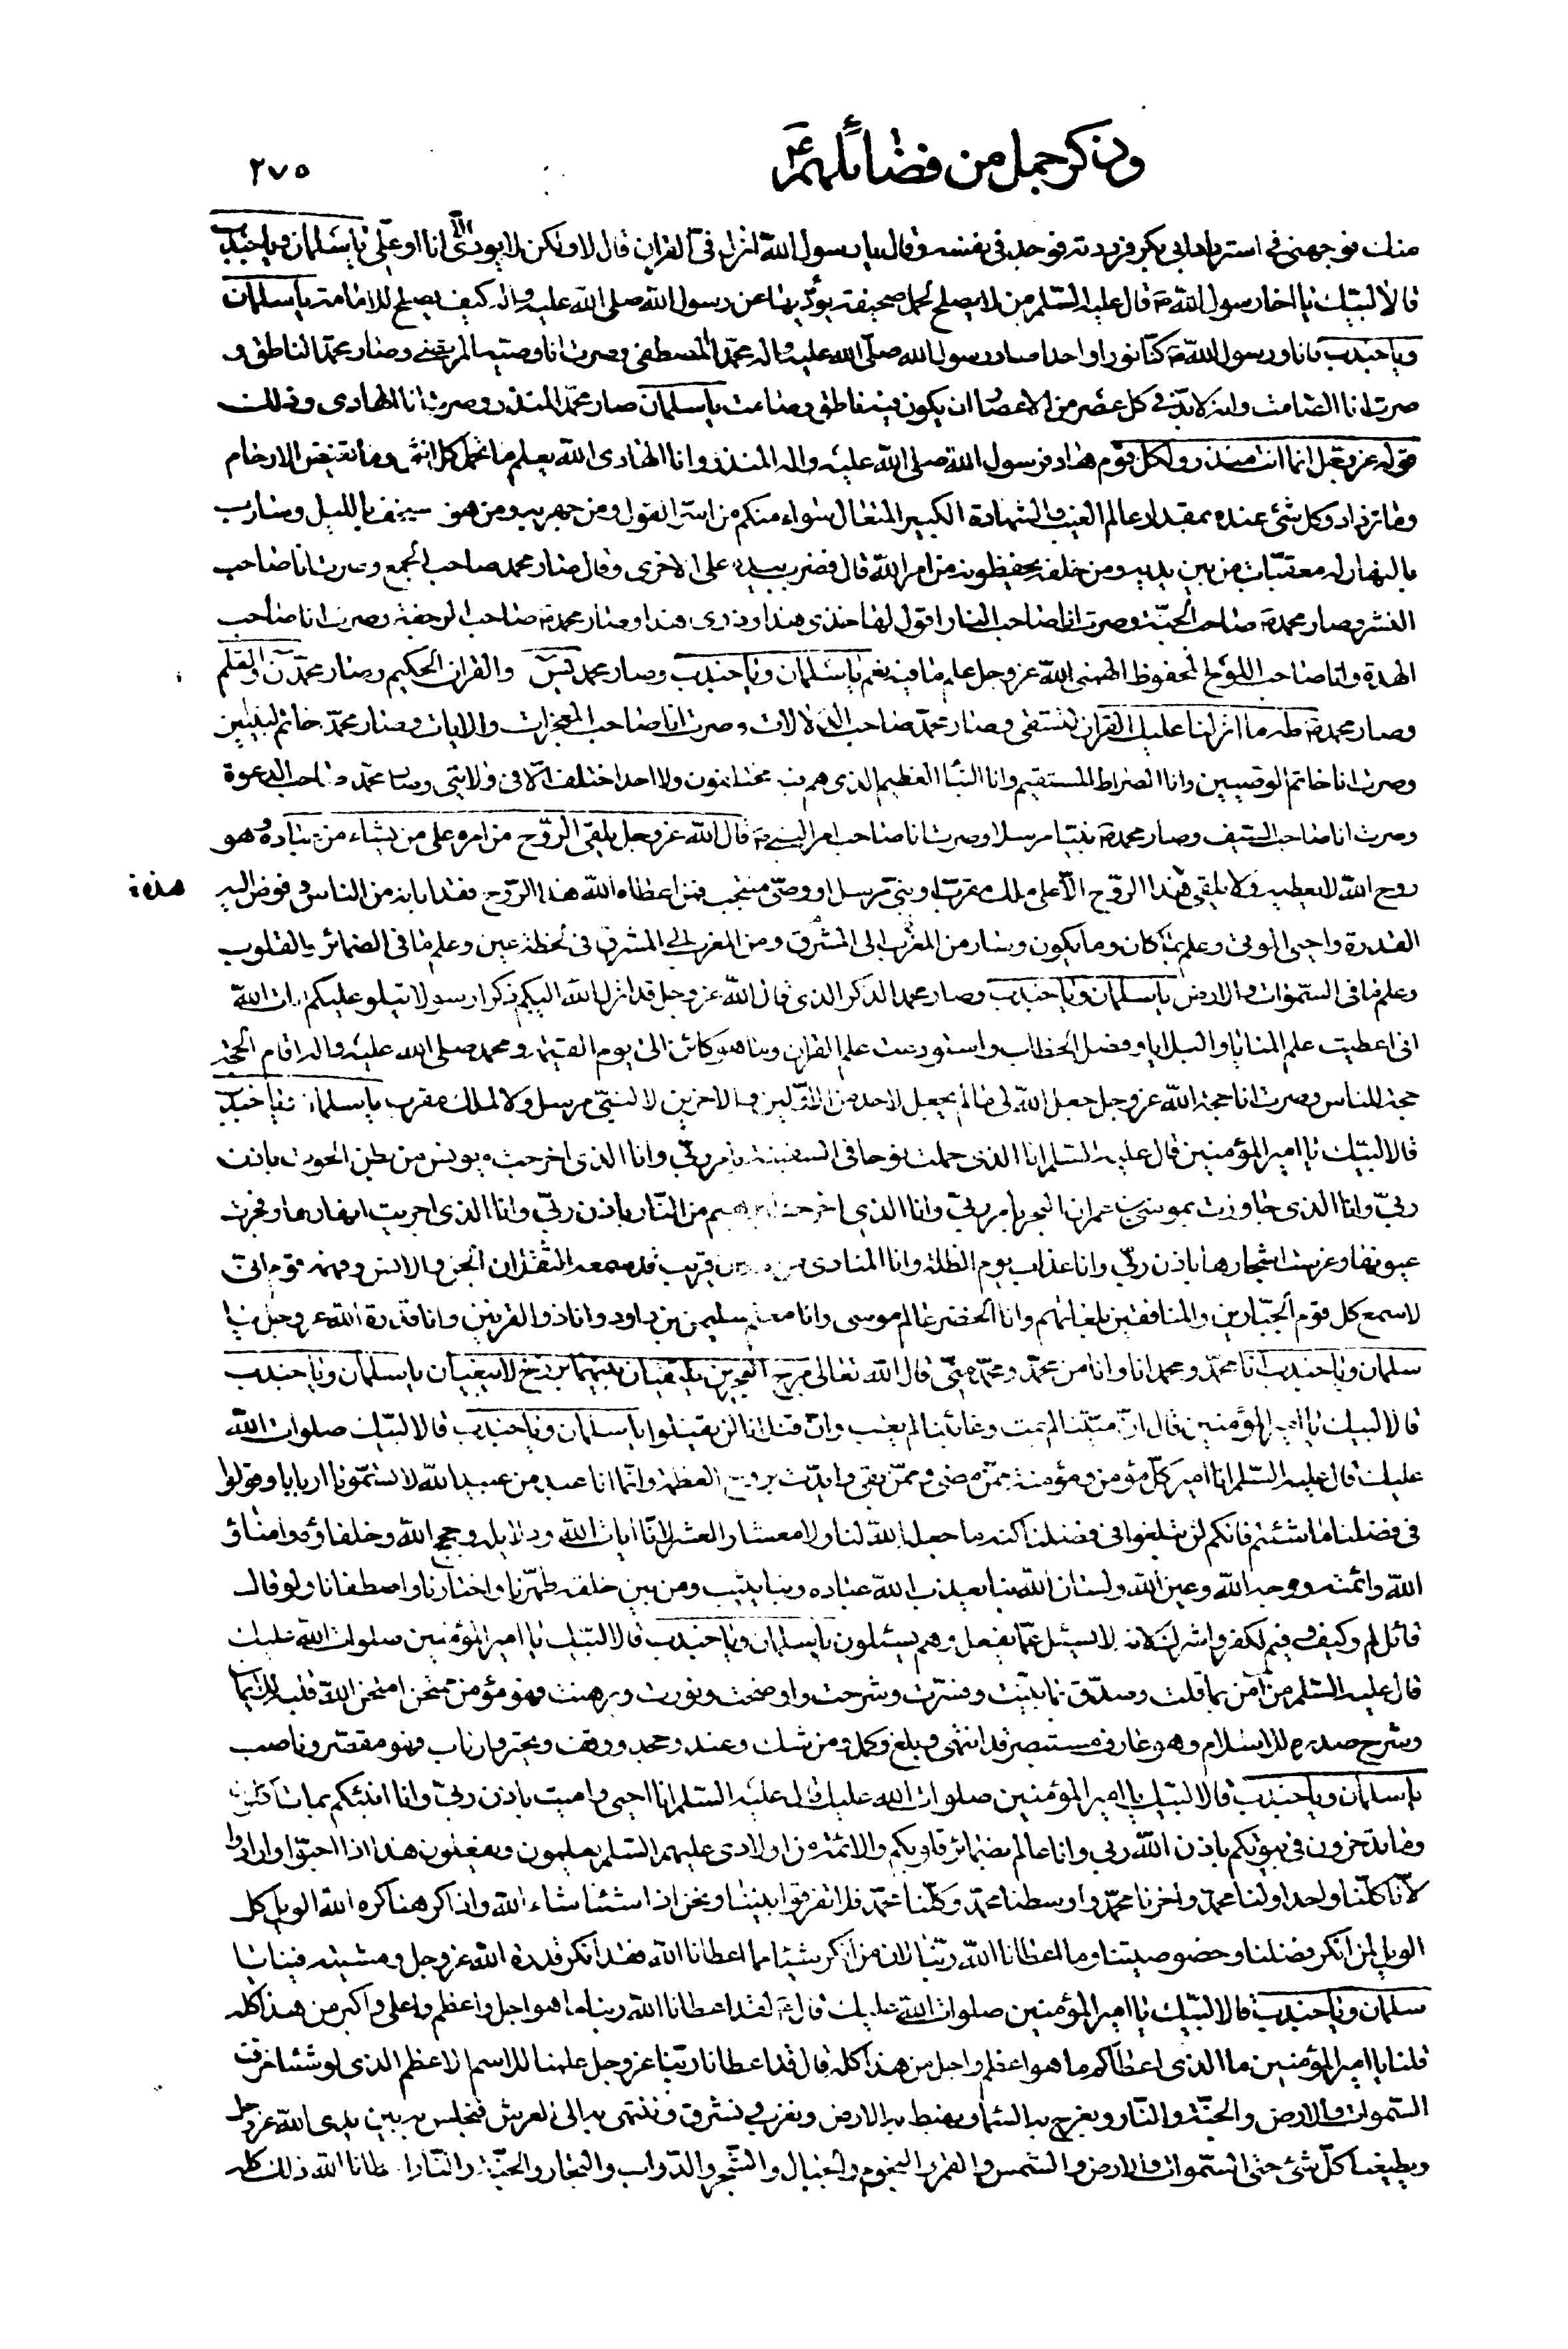 وذكر جمل من فضائلهم ع
٢٧٥
منك فوجهنى فى استرداد ابى بكر فرددته فوجد فى نفسه وقال يا رسول الله انزل فىّ القران قال لا ولكن لا يؤدى الا انا او علىّ يا سلمان ويا جندب
قالا لبيك يا اخا رسول الله ص قال عليه السلم من لا يصلح لحمل صحيفة يؤديها عن رسول الله صلى الله عليه واله كيف يصلح للامامة يا سلمان
ويا جندب فانا ورسول الله ص كنا نورا واحدا صار رسول الله صلى الله عليه واله محمد المصطفى وصرت انا وصيه المرتضى وصار محمد الناطق و
صرت انا الصامت وانه لا بد فى كل عصر من الاعصار ان يكون فيه ناطق وصامت يا سلمان صار محمد المنذر وصرت انا الهادى وذلك
قوله عز وجل انما انت منذر ولكل قوم هاد فرسول الله صلى الله عليه واله المنذر وانا الهادى الله يعلم ما تحمل كل انثى وما تغيض الارحام
وما تزداد وكل شئ عنده بمقدار عالم الغيب والشهادة الكبير المتعال سواء منكم من اسر القول ومن جهر به ومن هو مستخف بالليل وسارب
بالنهار له معقبات من بين يديه ومن خلفه يحفظونه من امر الله قال فضرب بيده على الاخرى وقال صار محمد صاحب الجمع وصرت انا صاحب
النشر وصار محمد ص صاحب الجنة وصرت انا صاحب النار اقول لها خذى هذا وذرى هذا وصار محمد ص صاحب الرجفة وصرت انا صاحب
الهدة وانا صاحب اللوح المحفوظ الهمنى الله عز وجل علم ما فيه نعم يا سلمان ويا جندب وصار محمد يس والقران الحكيم وصار محمد ن والقلم
وصار محمد ص طه ما انزلنا عليك القران لتشقى وصار محمد صاحب الدلالات وصرت انا صاحب المعجزات والايات وصار محمد خاتم النبيين
وصرت انا خاتم الوصيين وانا الصراط المستقيم وانا النبأ العظيم الذى هم فيه مختلفون ولا احد اختلف الا فى ولايتى وصار محمد صاحب الدعوة
وصرت انا صاحب السيف وصار محمد ص نبيا مرسلا وصرت انا صاحب امر النبى ص قال الله عز وجل يلقى الروح من امره على من يشاء من عباده وهو
روح الله لا يعطيه ولا يلقى هذا الروح الا على ملك مقرب او نبى مرسل او وصى منتجب فمن اعطاه الله هذا الروح فقد ابانه من الناس وفوض اليه
القدرة واحيى الموتى وعلم بما كان وما يكون وسار من المغرب الى المشرق ومن المغرب الى المشرق فى لحظة عين وعلم ما فى الضمائر بالقلوب
وعلم ما فى السموات والارض يا سلمان ويا جندب وصار محمد الذكر الذى قال الله عز وجل قد انزل الله اليكم ذكرا رسولا يتلو عليكم ايات الله
انى اعطيت علم المنايا والبلايا وفصل الخطاب واستودعت علم القران وما هو كائن الى يوم القيمة ومحمد صلى الله عليه واله اقام الحجة
حجة للناس وصرت انا حجة الله عز وجل جعل الله لى ما لم يجعل لاحد من الاولين والاخرين لا لنبى مرسل ولا لملك مقرب يا سلمان ويا جندب
قالا لبيك يا امير المؤمنين قال عليه السلم انا الذى حملت نوحا فى السفينة بامر ربى وانا الذى اخرجت يونس من بطن الحوت باذن
ربى وانا الذى جاوزت بموسى بن عمران البحر بامر ربى وانا الذى اخرجت ابرهيم من النار باذن ربى وانا الذى اجريت انهارها وفجرت
عيونها وغرست اشجارها باذن ربى وانا عذاب يوم الظلة وانا المنادى من مكان قريب قد سمعه الثقلان الجن والانس وفهمه قوم انى
لاسمع كل قوم الجبارين والمنافقين بلغاتهم وانا الخضر عالم موسى وانا معلم سليمن بن داود وانا ذو القرنين وانا قدرة الله عز وجل يا
سلمان ويا جندب انا محمد ومحمد انا وانا من محمد ومحمد منى قال الله تعالى مرج البحرين يلتقيان بينهما برزخ لا يبغيان يا سلمان ويا جندب
قالا لبيك يا امير المؤمنين قال ان ميتنا لم يمت وغائبنا لم يغب وان قتلانا لن يقتلوا يا سلمان ويا جندب قالا لبيك صلوات الله
عليك قال عليه السلم انا امير كل مؤمن ومؤمنة ممن مضى وممن بقى وايدت بروح العظمة وانما انا عبد من عبيد الله لا تسمونا اربابا وقولوا
فى فضلنا ما شئتم فانكم لن تبلغوا فى فضلنا كنه ما جعل الله لنا ولا معشار العشر لانا ايات الله ودلايله وحجج الله وخلفاؤه وامناؤ
الله وائمته ووجه الله وعين الله ولسان الله بنا يعذب الله عباده وبنا يثيب ومن بين خلقه طهرنا واختارنا واصطفانا ولو قال
قائل لم وكيف وفيم لكفر واشرك لانه لا يسئل عما يفعل وهم يسئلون يا سلمان ويا جندب قالا لبيك يا امير المؤمنين صلوات الله عليك
قال عليه السلم من آمن بما قلت وصدق بما بينت وفسرت وشرحت واوضحت ونورت وبرهنت فهو مؤمن ممتحن امتحن الله قلبه للايمان
وشرح صدره للاسلام وهو عارف مستبصر قد انتهى وبلغ وكمل ومن شك وعند وجحد ووقف وتحير وارتاب فهو مقصر وناصب
يا سلمان ويا جندب قالا لبيك يا امير المؤمنين صلوات الله عليك قال عليه السلم انا احيى واميت باذن ربى وانا انبئكم بما تاكلون
وما تدخرون فى بيوتكم باذن الله ربى وانا عالم بضمائر قلوبكم والائمة من اولادى عليهم السلم يعلمون ويفعلون هذا اذا احبوا وارادوا
لانا كلنا واحد اولنا محمد واخرنا محمد واوسطنا محمد وكلنا محمد فلا تفرقوا بيننا ونحن اذا شئنا شاء الله واذا كرهنا كره الله الويل كل
الويل لمن انكر فضلنا وخصوصيتنا وما اعطانا الله ربنا لان من انكر شيئا مما اعطانا الله فقد انكر قدرة الله عز وجل ومشيته فينا يا
سلمان ويا جندب قالا لبيك يا امير المؤمنين صلوات الله عليك قال ع لقد اعطانا الله ربنا ما هو اجل واعظم واعلى واكبر من هذا كله
قلنا يا امير المؤمنين ما الذى اعطاكم ما هو اعظم واجل من هذا كله قال قد اعطانا ربنا عز وجل علمنا للاسم الاعظم الذى لو شئنا خرقت
السموات والارض والجنة والنار ونعرج به السماء ونهبط به الارض ونغرب ونشرق وننتهى به الى العرش فنجلس به بين يدى الله عز وجل
ويطيعنا كل شئ حتى السموات والارض والشمس والقمر والنجوم والجبال والشجر والدواب والبحار والجنة والنار اعطانا الله ذلك كله